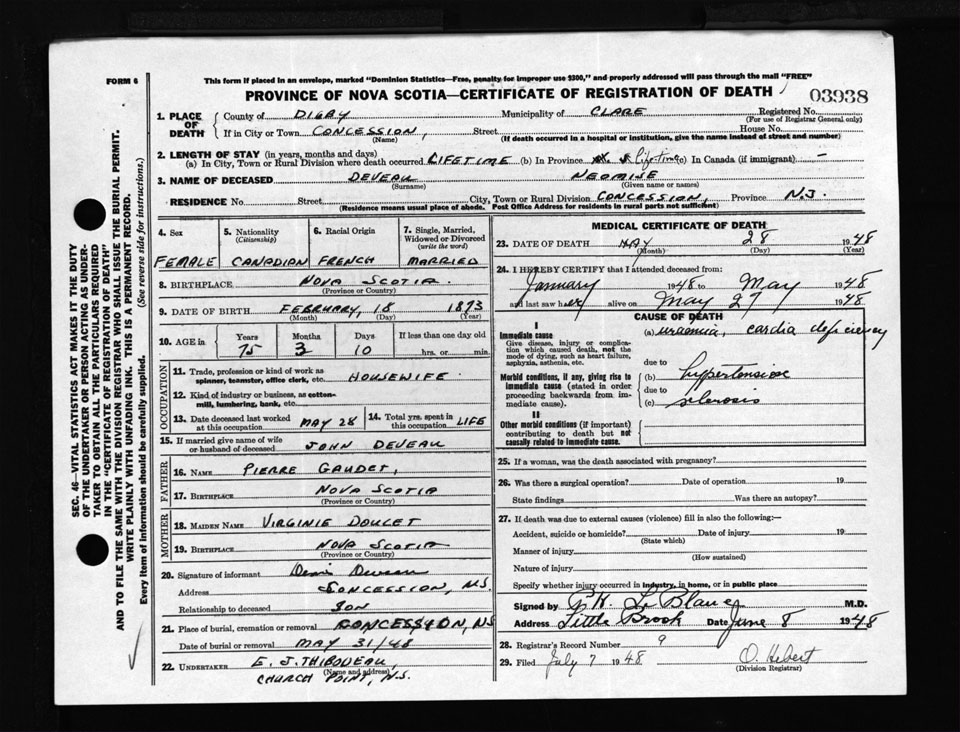 FORM 6
This form if placed in an envelope, marked "Dominion Statistics—Free, penalty for improper use $300," and properly addressed will pass through the mail "FREE"
PROVINCE OF NOVA SCOTIA—CERTIFICATE OF REGISTRATION OF DEATH
03938
1. PLACE OF DEATH County of DIGBY Municipality of CLARE Registered No.
(For use of Registrar General only)
If in City or Town CONCESSION, Street House No.
(Name) (If death occurred in a hospital or institution, give the name instead of street and number)
2. LENGTH OF STAY (in years, months and days)
(a) In City, Town or Rural Division where death occurred LIFETIME (b) In Province Life-time (c) In Canada (if immigrant) —
3. NAME OF DECEASED DEVEAU NEOMISE
(Surname) (Given name or names)
RESIDENCE No. Street City, Town or Rural Division CONCESSION, Province N.S.
(Residence means usual place of abode. Post Office Address for residents in rural parts not sufficient)
SEC. 46—VITAL STATISTICS ACT MAKES IT THE DUTY
OF THE UNDERTAKER OR PERSON ACTING AS UNDER-
TAKER TO OBTAIN ALL THE PARTICULARS REQUIRED
IN THE "CERTIFICATE OF REGISTRATION OF DEATH"
AND TO FILE THE SAME WITH THE DIVISION REGISTRAR WHO SHALL ISSUE THE BURIAL PERMIT.
WRITE PLAINLY WITH UNFADING INK. THIS IS A PERMANENT RECORD.
Every item of information should be carefully supplied. (See reverse side for instructions.)
4. Sex 5. Nationality (Citizenship) 6. Racial Origin 7. Single, Married, Widowed or Divorced (write the word)
FEMALE CANADIAN FRENCH MARRIED
8. BIRTHPLACE NOVA SCOTIA
(Province or Country)
9. DATE OF BIRTH FEBRUARY, 18 1873
(Month) (Day) (Year)
10. AGE IN Years Months Days If less than one day old
75 3 10 hrs. or min.
OCCUPATION
11. Trade, profession or kind of work as spinner, teamster, office clerk, etc. HOUSEWIFE
12. Kind of industry or business, as cotton-mill, lumbering, bank, etc.
13. Date deceased last worked at this occupation MAY 28 14. Total yrs. spent in this occupation LIFE
15. If married give name of wife or husband of deceased JOHN DEVEAU
FATHER
16. NAME PIERRE GAUDET,
17. BIRTHPLACE NOVA SCOTIA
(Province or Country)
MOTHER
18. MAIDEN NAME VIRGINIE DOUCET
19. BIRTHPLACE NOVA SCOTIA
(Province or Country)
20. Signature of informant
Address CONCESSION, N.S.
Relationship to deceased SON
21. Place of burial, cremation or removal CONCESSION, NS
Date of burial or removal MAY 31/48
22. UNDERTAKER E. J. THIBODEAU,
(Name and address)
CHURCH POINT, N.S.
MEDICAL CERTIFICATE OF DEATH
23. DATE OF DEATH MAY 28 1948
(Month) (Day) (Year)
24. I HEREBY CERTIFY that I attended deceased from:
January 1948 to May 1948
and last saw her alive on May 27 1948
CAUSE OF DEATH
I
Immediate cause (a) uraemia, cardia deficiency
Give disease, injury or complication which caused death, not the mode of dying, such as heart failure, asphyxia, asthenia, etc.
due to
Morbid conditions, if any, giving rise to immediate cause (stated in order proceeding backwards from immediate cause). (b) hypertension
due to
(c) sclerosis
II
Other morbid conditions (if important) contributing to death but not causally related to immediate cause.
25. If a woman, was the death associated with pregnancy?
26. Was there a surgical operation? Date of operation 19
State findings Was there an autopsy?
27. If death was due to external causes (violence) fill in also the following:—
Accident, suicide or homicide? Date of injury 19
(State which)
Manner of injury
(How sustained)
Nature of injury
Specify whether injury occurred in industry, in home, or in public place
Signed by P.H. LeBlanc M.D.
Address Little Brook Date June 8 1948
28. Registrar's Record No. 9
29. Filed July 7 1948 O. Hebert
(Division Registrar)